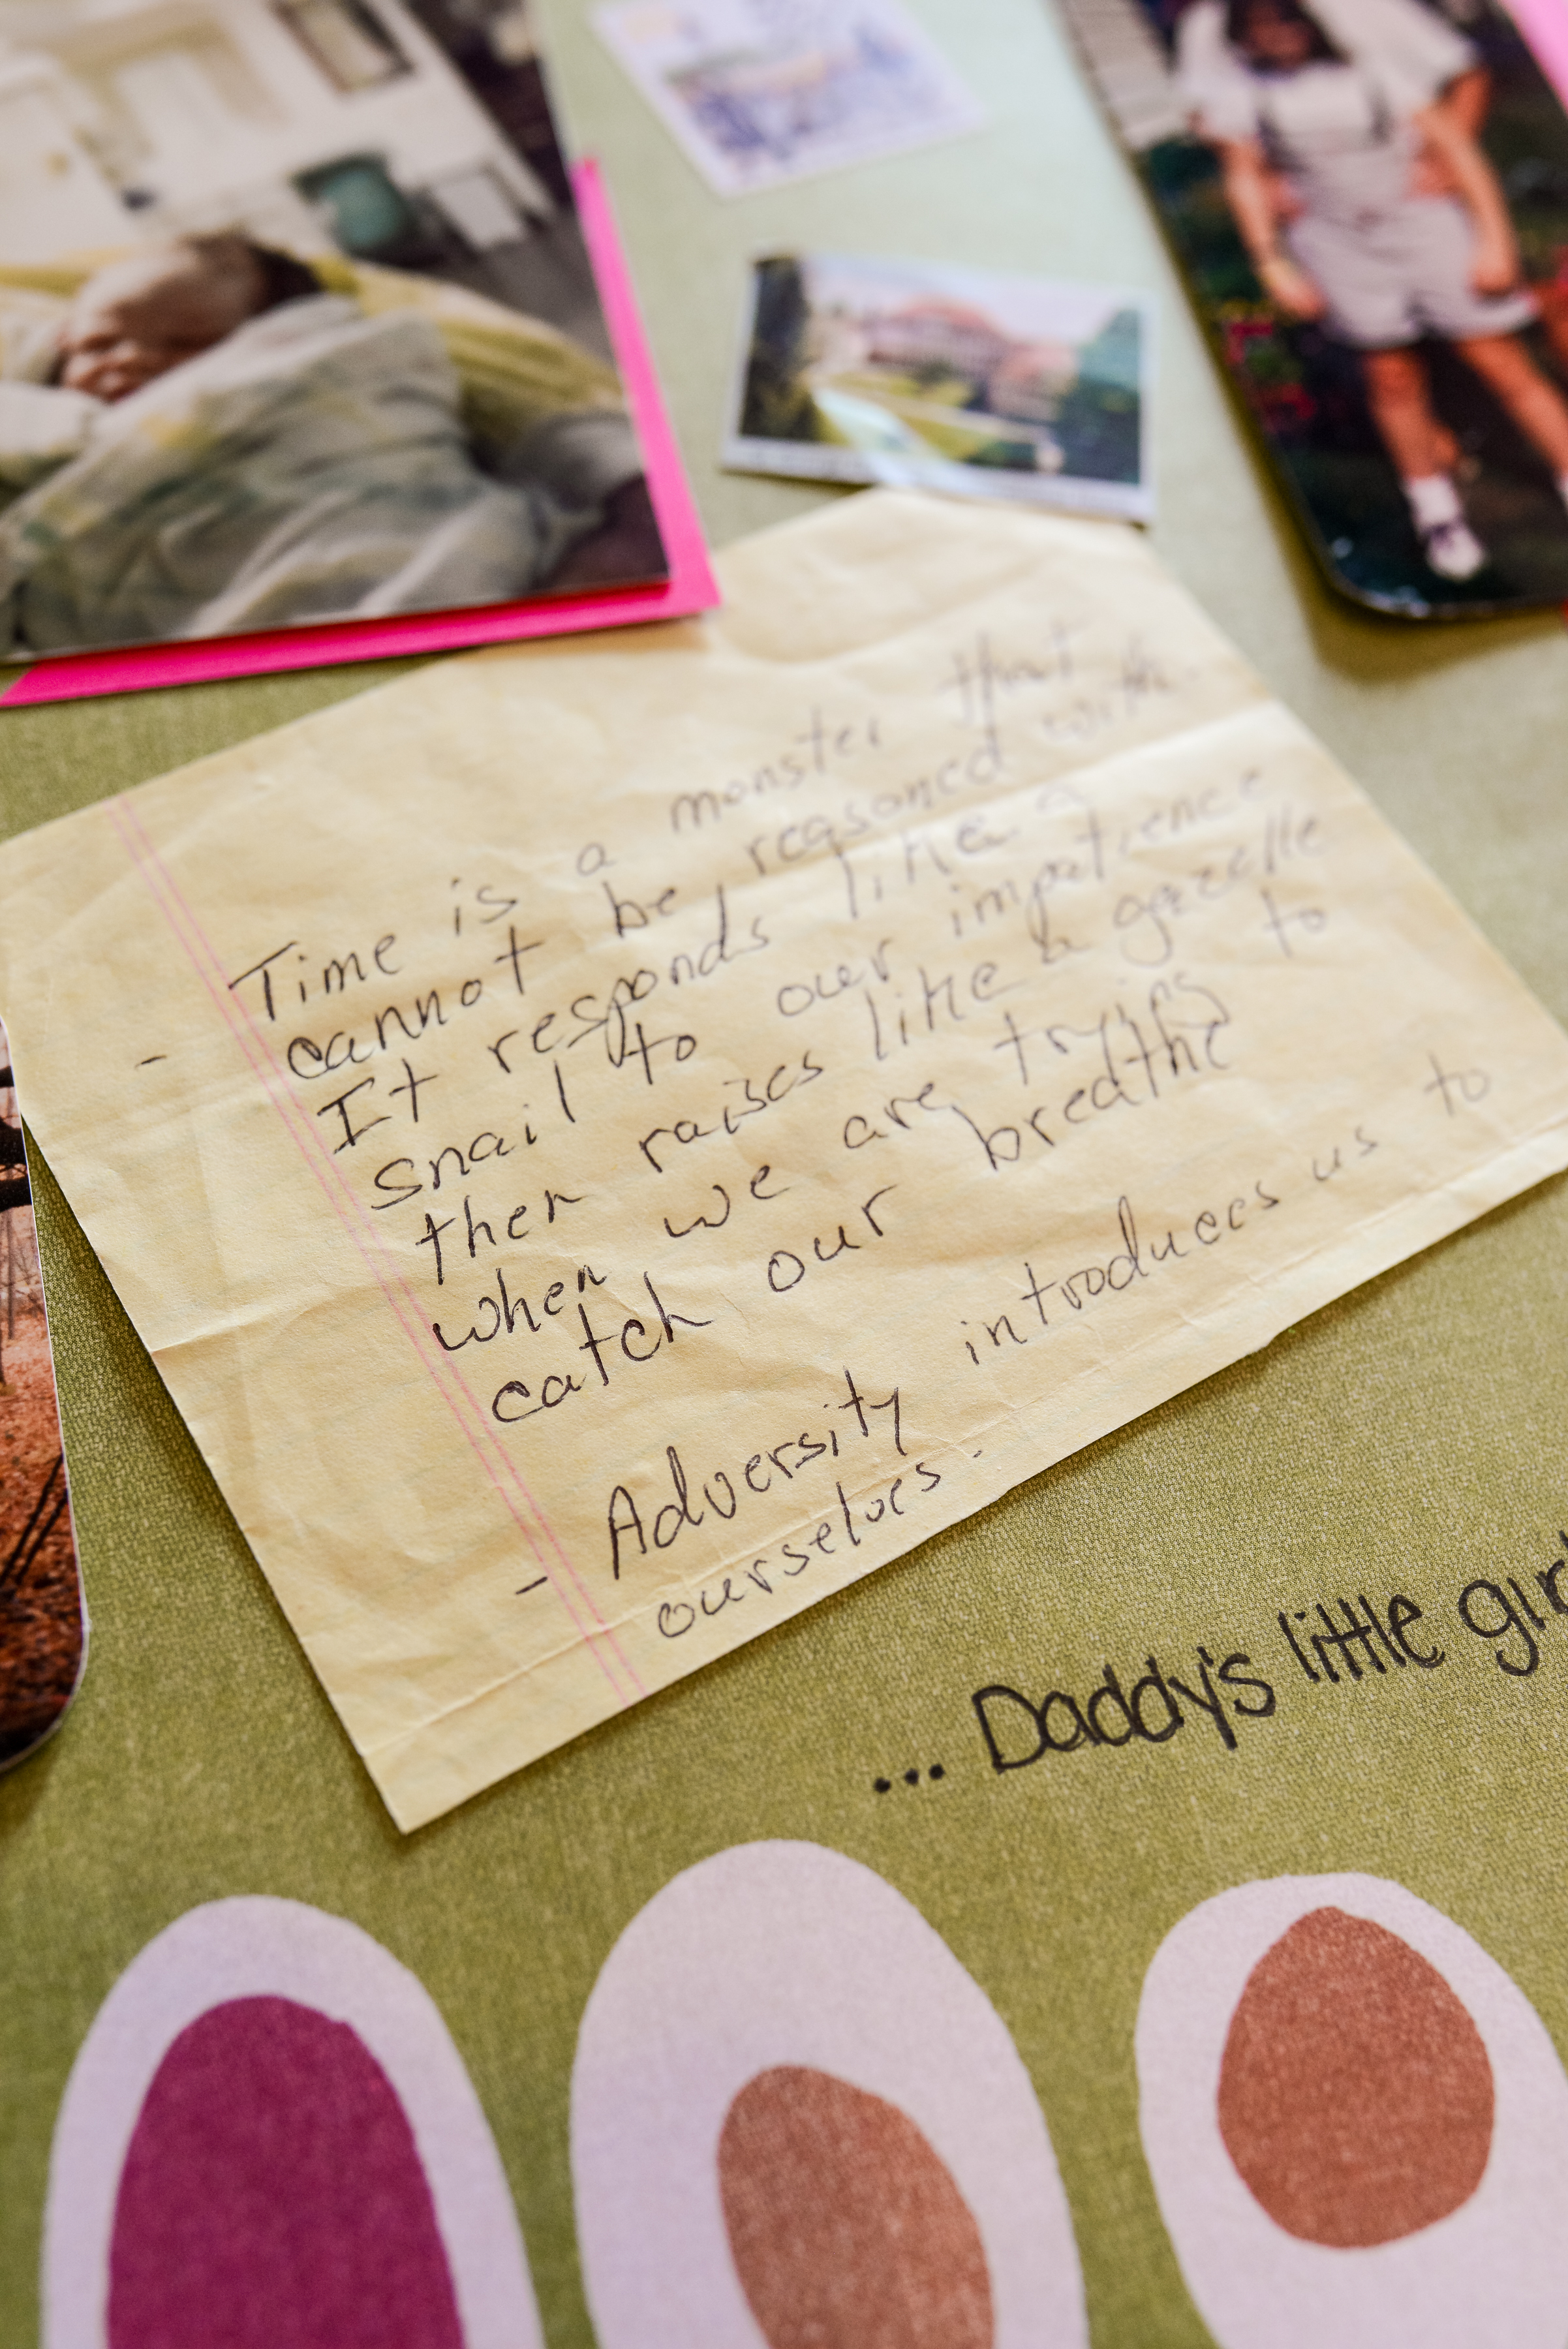 Time is a monster that
- cannot be reasoned with.
It responds like a
snail to our impatience
then raises like a gazelle
when we are trying to
catch our breathe
- Adversity introduces us to
ourselves.
... Daddy's little gir